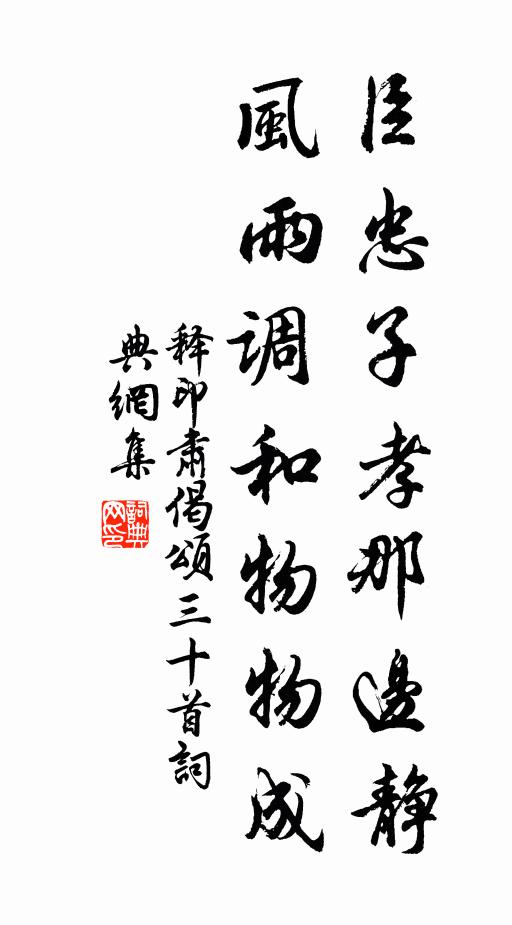 臣忠子孝那邊靜
風雨调和物物成
释印肅偈頌三十首詞
典網集
詞典网印